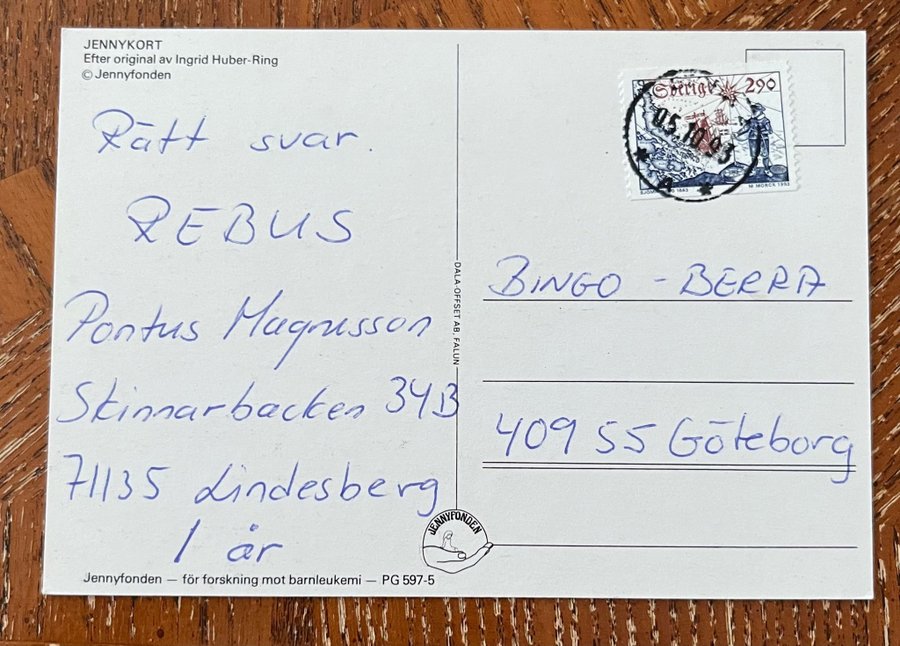 JENNYKORT
Efter original av Ingrid Huber-Ring
© Jennyfonden
Rätt svar.
REBUS
Pontus Magnusson
Skinnarbacken 34B
71135 Lindesberg
1 år
Jennyfonden — för forskning mot barnleukemi — PG 597-5
DALA-OFFSET AB, FALUN
JENNYFONDEN
Sverige 290
05.10.93
A
M MORCK 1993
BINGO - BERRA
409 55 Göteborg